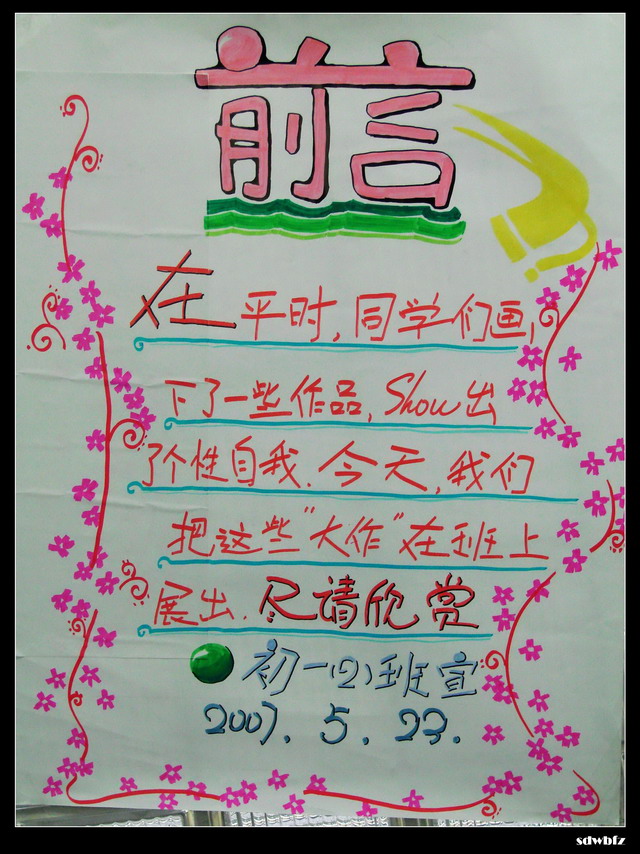 前言
在平时,同学们画,
下了一些作品,Show出
了个性自我.今天,我们
把这些"大作"在班上
展出.尽请欣赏
初一(2)班宣
2007.5.23.
sdwbfz